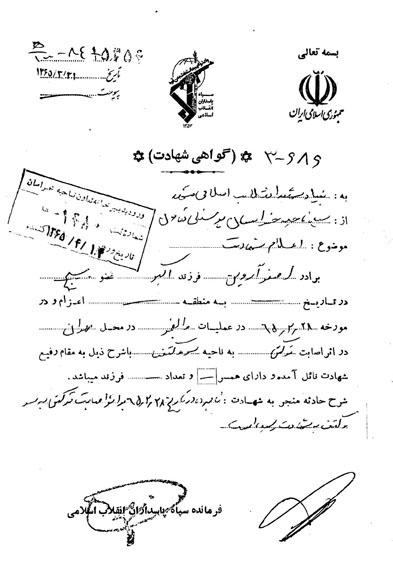 بسمه تعالی
جمهوری اسلامی ایران
سپاه
پاسداران
انقلاب
اسلامی
تاریخ ۱۳۶۵/۳/۳۱
پیوست
(گواهی شهادت) ۳-۶۸۶
به : بنیاد شهید انقلاب اسلامی مشهد
از : سپاه ناحیه خراسان پرسنلی تعاون
موضوع : اعلام شهادت
ورود به دبیرخانه تعاون ناحیه خراسان
شماره ثبت
تاریخ ورود ۱۳۶۵/۴/۱۲
برادر اصغر فرزند اکبر عضو بسیج
در تاریخ — به منطقه — اعزام و در
مورخه ۶۵٫۲٫۲۸ در عملیات والفجر در محل مهران
در اثر اصابت ترکش به ناحیه سر و کتف باشرح ذیل به مقام رفیع
شهادت نائل آمده و دارای همسر — و تعداد — فرزند میباشد.
شرح حادثه منجر به شهادت : نامبرده در تاریخ ۶۵٫۲٫۲۸ بر اثر اصابت ترکش به سر
و کتف به شهادت رسیده است
فرمانده سپاه پاسداران انقلاب اسلامی